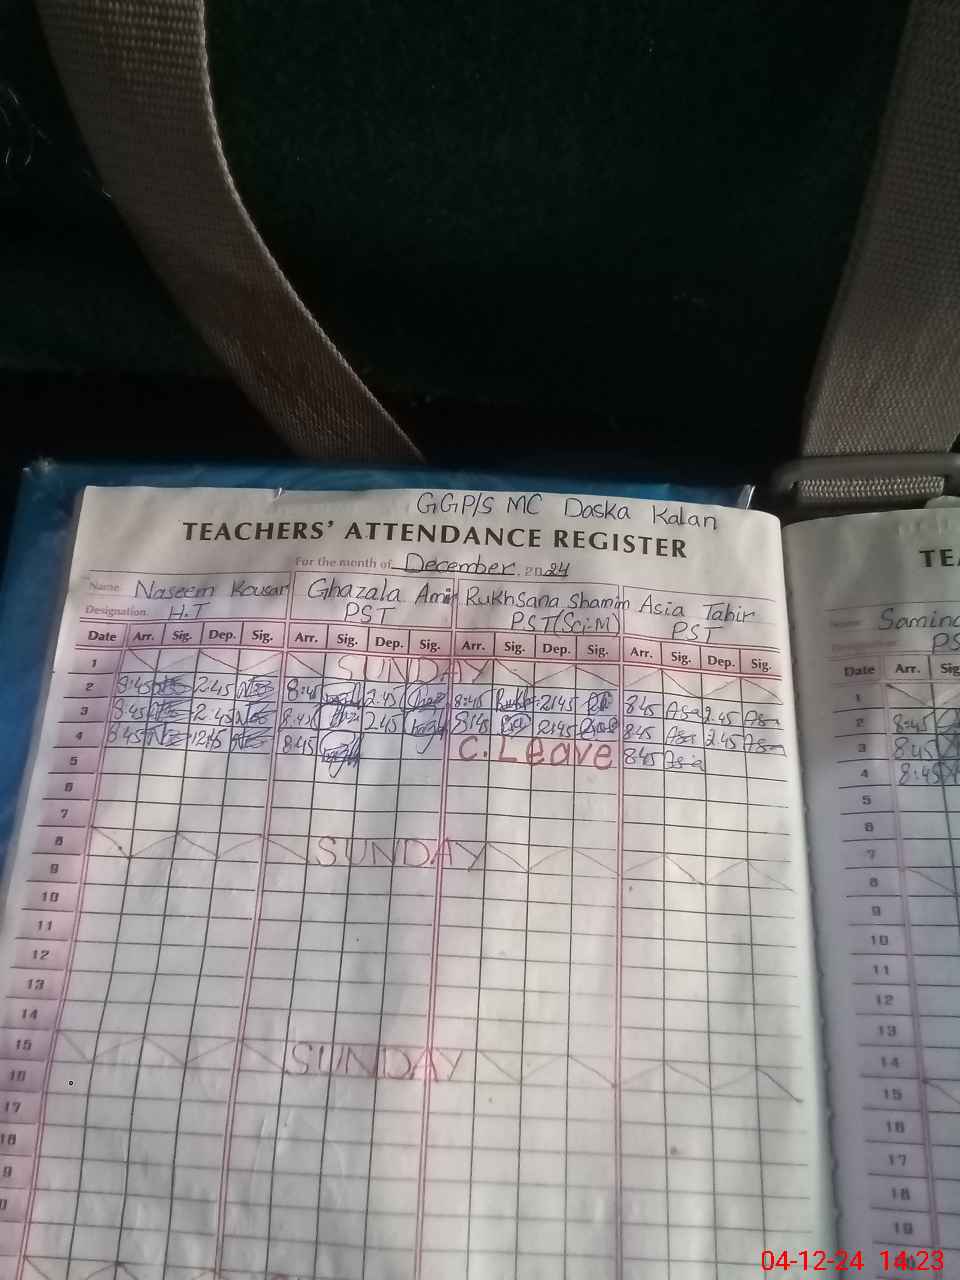 GGP/S MC Daska Kalan
TEACHERS' ATTENDANCE REGISTER
For the month of December 2024
Name Naseem Kousar Ghazala Amin Rukhsana Shamim Asia Tahir
Designation H.T PST PST(Sci-M) PST
Date Arr. Sig. Dep. Sig. Arr. Sig. Dep. Sig. Arr. Sig. Dep. Sig. Arr. Sig. Dep. Sig.
1 SUNDAY
2 8:45 2:45 8:45 2:45 8:45 2:45 8:45 2:45
3 8:45 2:45 8:45 2:45 8:45 2:45 8:45 2:45
4 8:45 12:45 8:45 C. Leave 8:45 Asia
5
6
7
8 SUNDAY
9
10
11
12
13
14
15 SUNDAY
16
17
18
9
TEA
Name Samina
PS
Date Arr. Sig
1
2 8:45
3 8:45
4 8:45
5
6
7
8
9
10
11
12
13
14
15
16
17
18
19
04-12-24 14:23